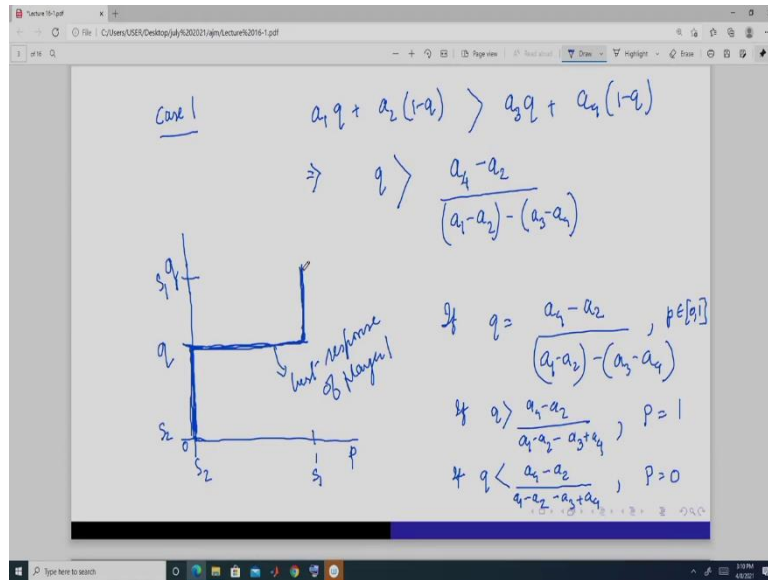 Lecture 16-1.pdf
File | C:/Users/USER/Desktop/july%202021/ajm/Lecture%2016-1.pdf
of 18
Page view
Read aloud
Draw
Highlight
Erase
Case 1
a₁q + a₂(1-q) > a₃q + a₄(1-q)
⇒ q > (a₄-a₂)/((a₁-a₂)-(a₃-a₄))
S₁
q
q
best response
of player 1
S₂
0
S₂
S₁
P
If q = (a₄-a₂)/((a₁-a₂)-(a₃-a₄)), p∈[0,1]
If q > (a₄-a₂)/(a₁-a₂-a₃+a₄), P=1
If q < (a₄-a₂)/(a₁-a₂-a₃+a₄), P=0
Type here to search
3:10 PM
4/8/2021